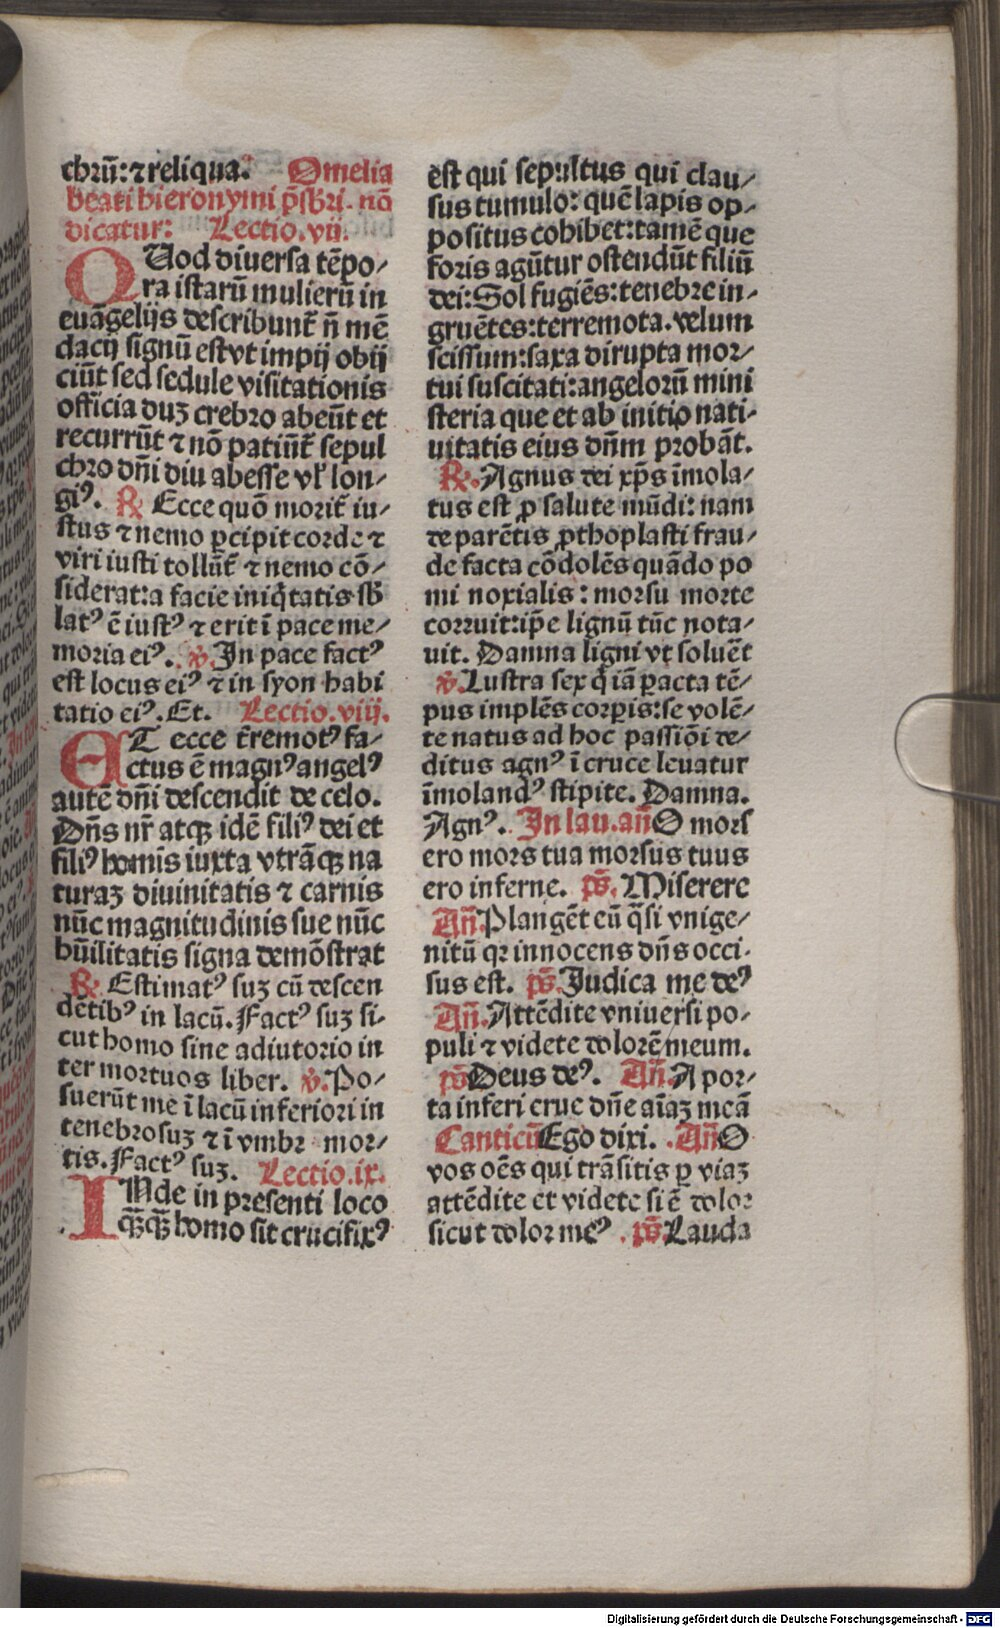 chrū: ⁊ reliqua. Omelia
beati hieronymi p̄sbri. nō
dicatur: Lectio.vii.
QUod diuersa tēpo⸗
ra istarū mulierū in
euāgelijs describunt̄ n̄ mē
dacij signū est vt impij obij
ciūt sed sedule visitationis
officia duꝫ crebro abeūt et
recurrūt ⁊ nō patiūt̄ sepul
chro dn̄i diu abesse vl̓ lon⸗
giꝰ. ℟ Ecce quō morit̄ iu⸗
stus ⁊ nemo ꝑcipit corde ⁊
viri iusti tollūt̄ ⁊ nemo cō⸗
siderat: a facie iniq̄tatis sb̄
latꝰ ē iustꝰ ⁊ erit ī pace me⸗
moria eiꝰ. ℣. In pace factꝰ
est locus eiꝰ ⁊ in syon habi
tatio eiꝰ. Et. Lectio.viij.
ET ecce t̄remotꝰ fa⸗
ctus ē magnꝰ angelꝰ
autē dn̄i descendit de celo.
Dn̄s nr̄ atqꝫ idē filiꝰ dei et
filiꝰ homīs iuxta vtrāqꝫ na
turaꝫ diuinitatis ⁊ carnis
nūc magnitudinis sue nūc
hūilitatis signa demōstrat
℟. Estimatꝰ suꝫ cū descen
dētibꝰ in lacū. Factꝰ suꝫ si⸗
cut homo sine adiutorio in
ter mortuos liber. ℣. Po⸗
suerūt me ī lacū inferiori in
tenebrosuꝫ ⁊ ī vmbr mor⸗
tis. Factꝰ suꝫ. Lectio.ix.
INde in presenti loco
qȝ̄qȝ̄ homo sit crucifixꝰ
est qui sepultus qui clau⸗
sus tumulo: quē lapis op⸗
positus cohibet: tamē que
foris agūtur ostendūt filiū
dei: Sol fugiēs: tenebre in⸗
gruētes: terremota. velum
scissum: saxa dirupta mor⸗
tui suscitati: angelorū mini
steria que et ab initio nati⸗
uitatis eius dn̄m probāt.
℟. Agnus dei xp̄s īmola⸗
tus est ꝓ salute mūdi: nam
de parētis ꝓthoplasti frau⸗
de facta cōdolēs quādo po
mi noxialis: morsu morte
corruit: ip̄e lignū tūc nota⸗
uit. Damna ligni vt soluēt
℣. Lustra sex q̄ iā ꝑacta tē⸗
pus implēs corꝑis: se volē⸗
te natus ad hoc passiōi de⸗
ditus agnꝰ ī cruce leuatur
īmolandꝰ stipite. Damna.
Agnꝰ. In lau. an̄ O mors
ero mors tua morsus tuus
ero inferne. ps̄. Miserere
An̄. Plangēt eū q̄si vnige⸗
nitū qꝛ innocens dn̄s occi⸗
sus est. ps̄. Iudica me deꝰ
An̄. Attēdite vniuersi po⸗
puli ⁊ videte dolorē meum.
ps̄ Deus deꝰ. An̄. A por⸗
ta inferi erue dn̄e aīaꝫ meā
Canticū Ego dixi. An̄ O
vos oēs qui trāsitis ꝑ viaꝫ
attēdite et videte si ē dolor
sicut dolor meꝰ. ps̄. Lauda
Digitalisierung gefördert durch die Deutsche Forschungsgemeinschaft - DFG